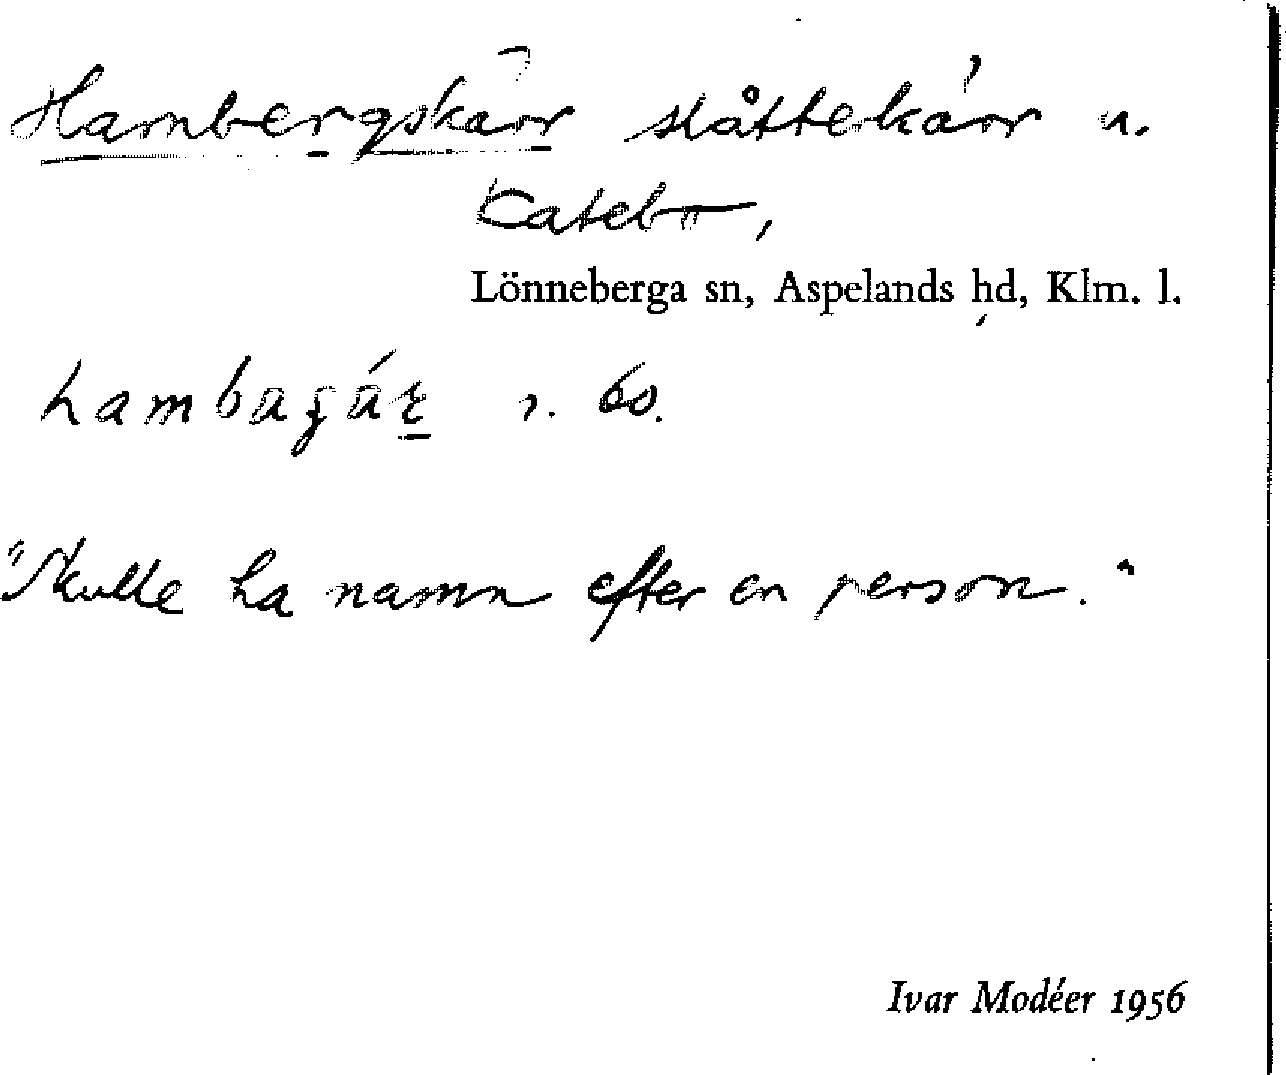 Hambergskärr slåtterkärr u.
Katebo,
Lönneberga sn, Aspelands hd, Klm. l.
"Skulle ha namn efter en person."
Ivar Modéer 1956